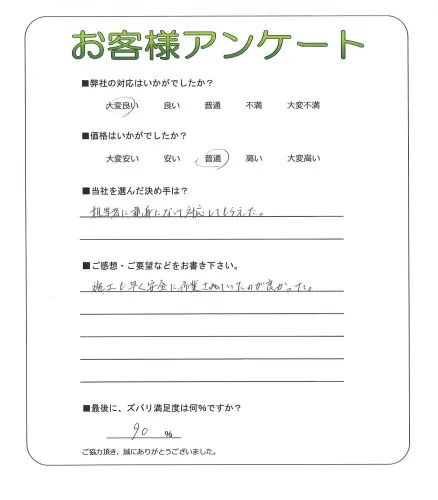 お客様アンケート
■弊社の対応はいかがでしたか？
大変良い 良い 普通 不満 大変不満
■価格はいかがでしたか？
大変安い 安い 普通 高い 大変高い
■当社を選んだ決め手は？
担当者に親身になって対応してもらえた。
■ご感想・ご要望などをお書き下さい。
施工も早く安全に作業されていたのが良かった。
■最後に、ズバリ満足度は何％ですか？
90 %
ご協力頂き、誠にありがとうございました。